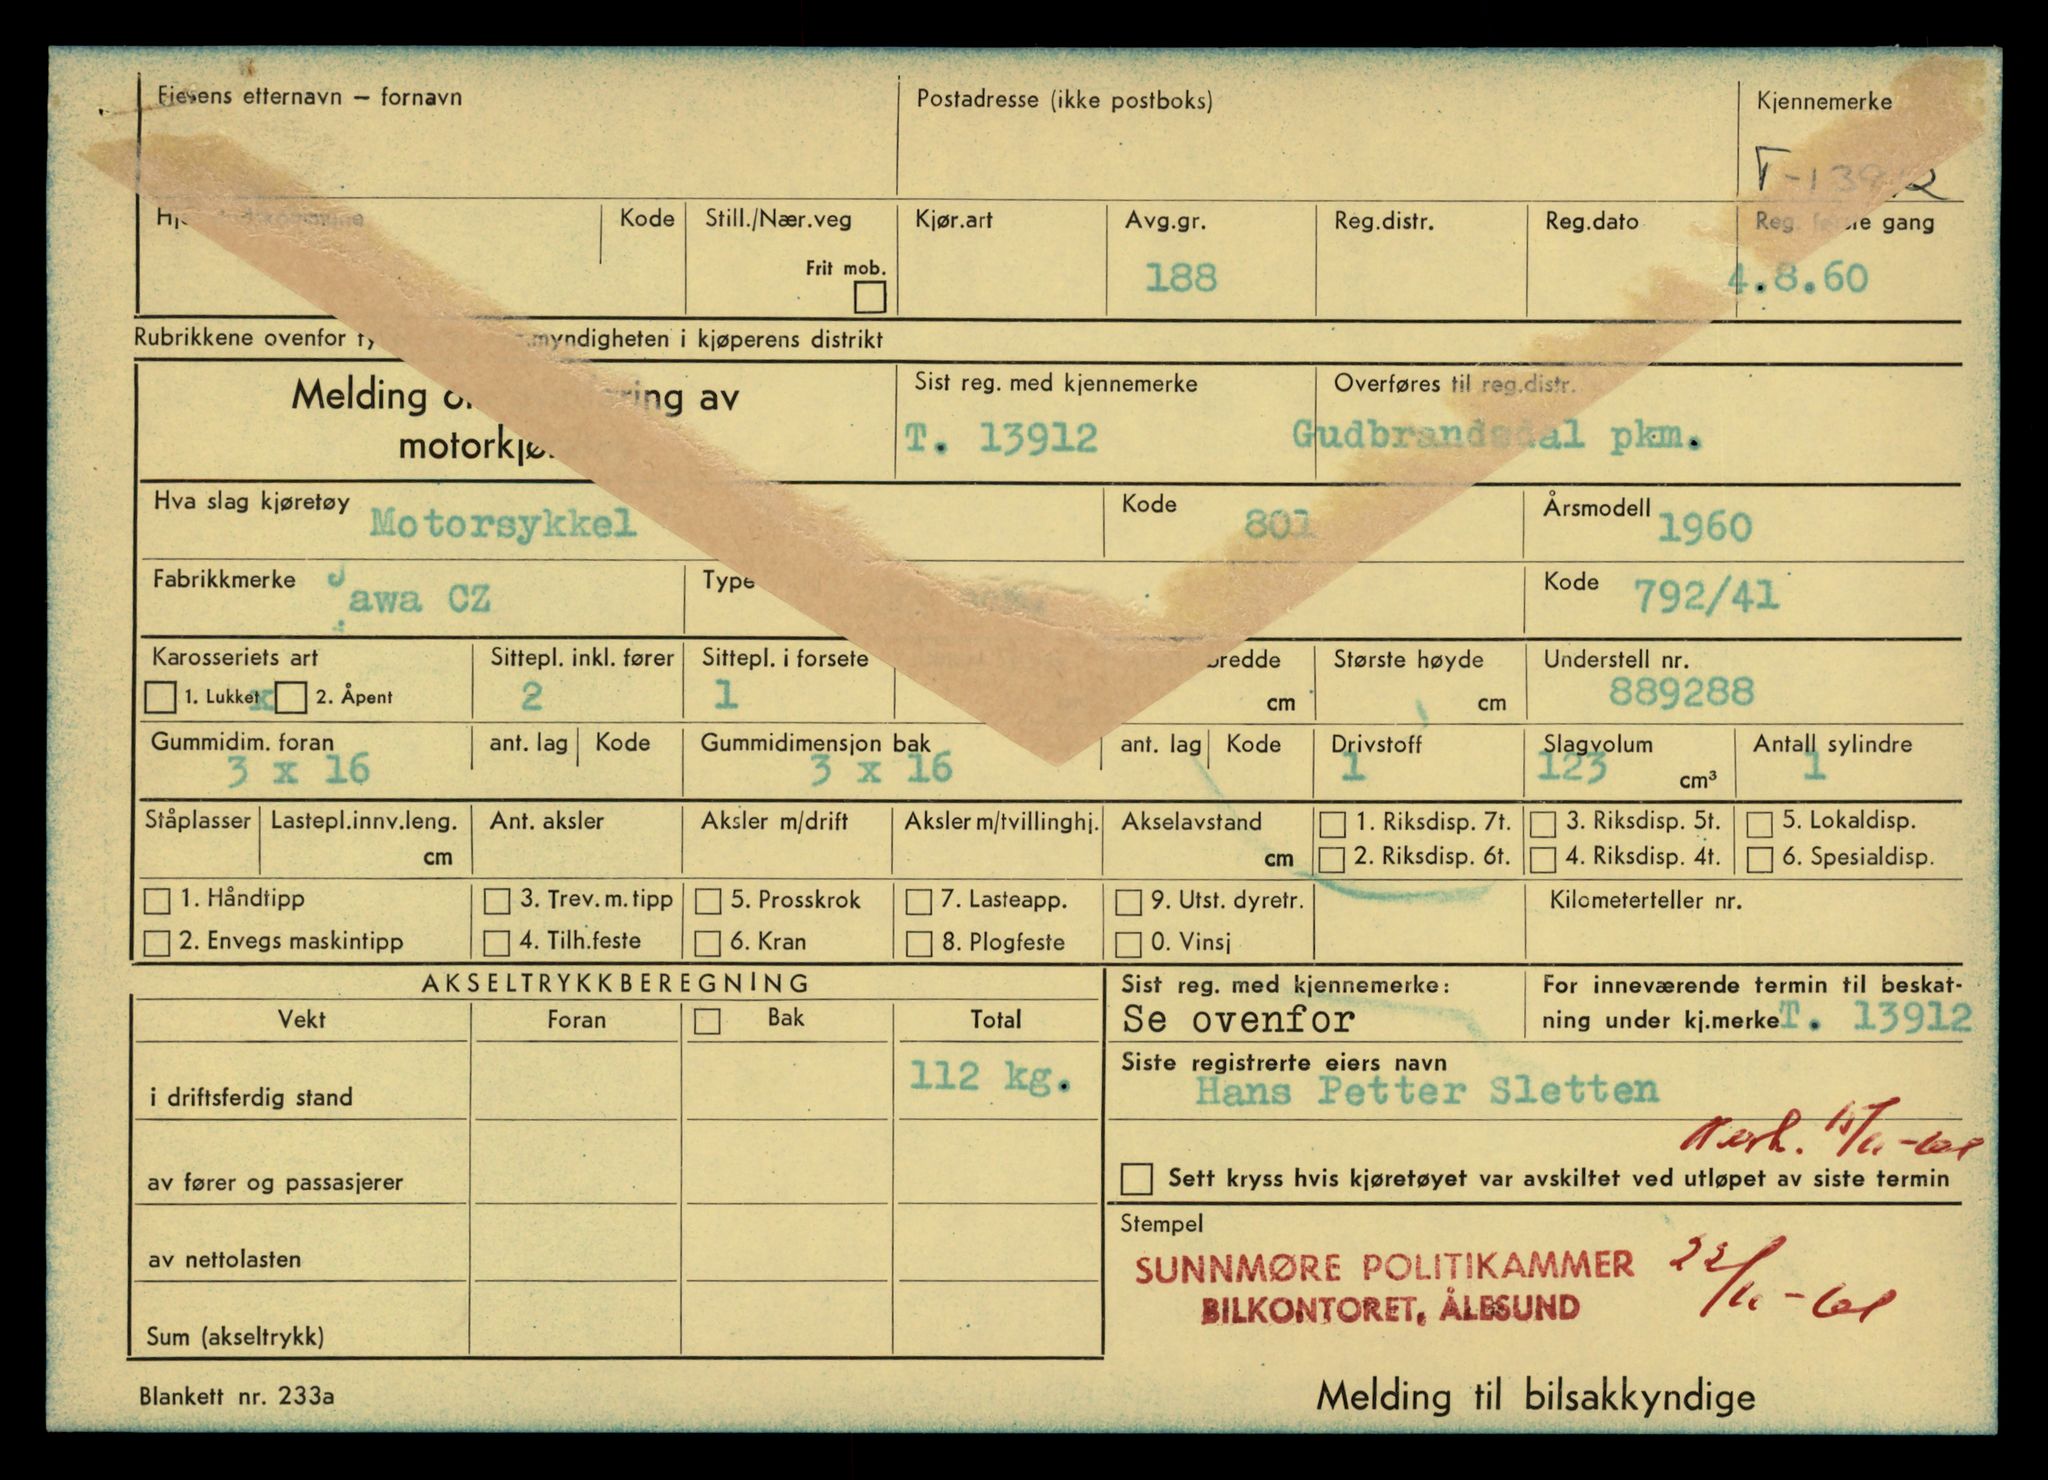 Eierens etternavn – fornavn
Postadresse (ikke postboks)
Kjennemerke
T-13912
Kode
Still./Nær.veg
Frit mob.
Kjør.art
Avg.gr.
188
Reg.distr.
Reg.dato
Reg. første gang
4.8.60
Rubrikkene ovenfor myndigheten i kjøperens distrikt
Melding av
Sist reg. med kjennemerke
T. 13912
Overføres til reg.distr.
Gudbrandsdal pkm.
Hva slag kjøretøy
Motorsykkel
Kode
801
Årsmodell
1960
Fabrikkmerke
Jawa CZ
Type
Kode
792/41
Karosseriets art
1. Lukket x 2. Åpent
Sittepl. inkl. fører
2
Sittepl. i forsete
1
cm
Største høyde
cm
Understell nr.
889288
Gummidim. foran
3 x 16
ant. lag
Kode
Gummidimensjon bak
3 x 16
ant. lag
Kode
Drivstoff
1
Slagvolum
123 cm³
Antall sylindre
1
Ståplasser
Lastepl.innv.leng.
cm
Ant. aksler
Aksler m/drift
Aksler m/tvillinghj.
Akselavstand
cm
1. Riksdisp. 7t.
2. Riksdisp. 6t.
3. Riksdisp. 5t.
4. Riksdisp. 4t.
5. Lokaldisp.
6. Spesialdisp.
1. Håndtipp
2. Envegs maskintipp
3. Trev. m. tipp
4. Tilh.feste
5. Prosskrok
6. Kran
7. Lasteapp.
8. Plogfeste
9. Utst. dyretr.
0. Vinsj
Kilometerteller nr.
AKSELTRYKKBEREGNING
Vekt
Foran
Bak
Total
i driftsferdig stand
112 kg.
av fører og passasjerer
av nettolasten
Sum (akseltrykk)
Sist reg. med kjennemerke:
Se ovenfor
For inneværende termin til beskat-
ning under kj.merke T. 13912
Siste registrerte eiers navn
Hans Petter Sletten
Sett kryss hvis kjøretøyet var avskiltet ved utløpet av siste termin
Stempel
SUNNMØRE POLITIKAMMER
BILKONTORET, ÅLESUND
22/11-61
Blankett nr. 233a
Melding til bilsakkyndige